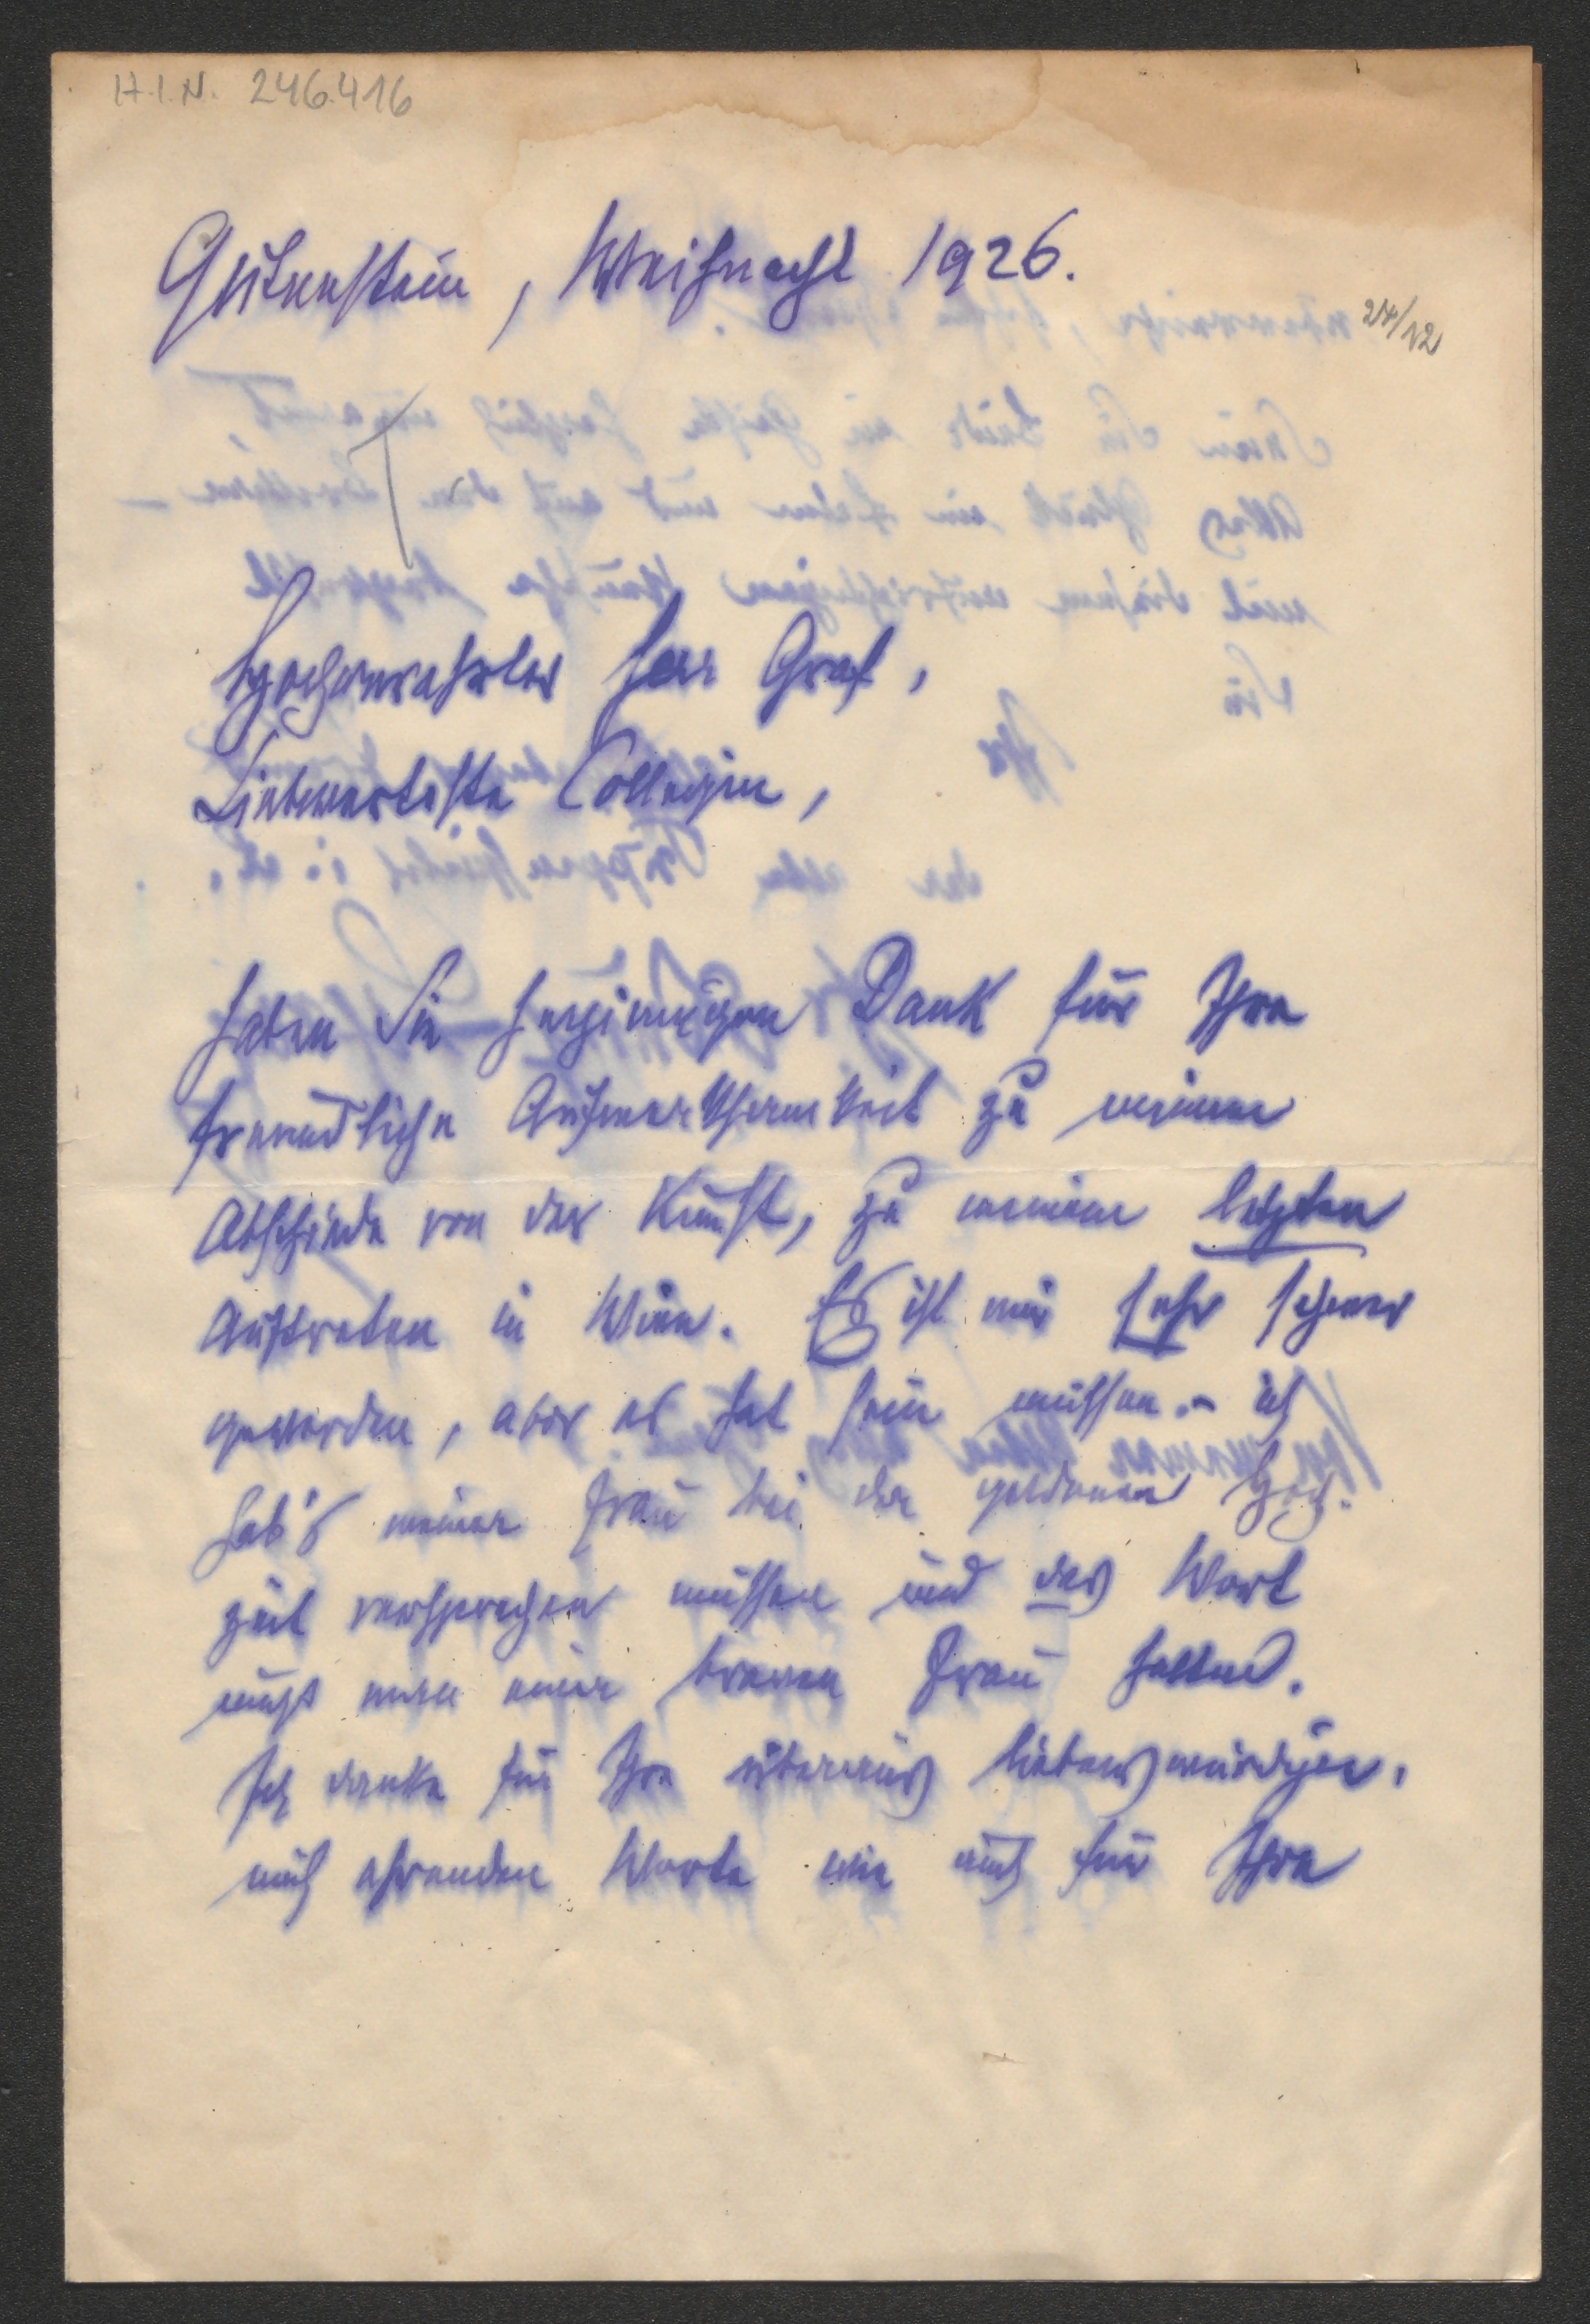 H.I.N. 246.416
Gutenstein, Weihnacht 1926.
24/12
Hochverehrter Herr Graf,
Liebwerteste Collegin,
haben Sie herzinnigen Dank für Ihre
freundliche Aufmerksamkeit zu meinem
Abschiede von der Kunst, zu meinem letzten
Auftreten in Wien. Es ist mir sehr schwer
geworden, aber es hat sein müssen. – ich
hab's meiner Frau bei der goldenen Hoch-
zeit versprechen müssen und das Wort
muß man einer braven Frau halten.
Ich danke für Ihre überaus liebenswürdigen,
mich ehrenden Worte wie auch für Ihre